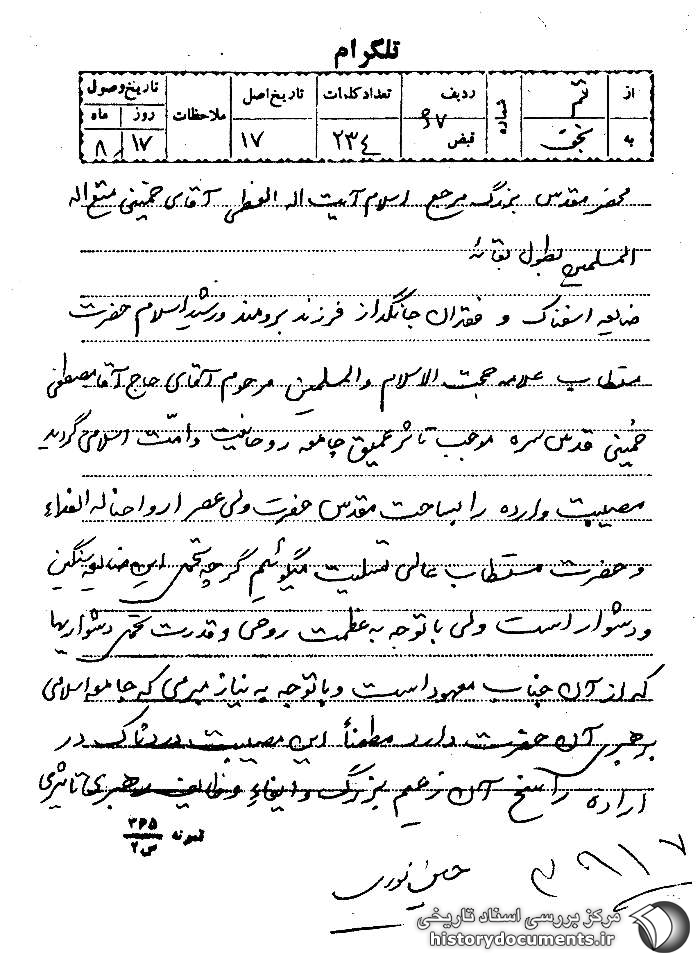 تلگرام
از قم
به نجف
شماره
ردیف ۶۷
قبض
تعداد کلمات ۲۳۴
تاریخ اصل ۱۷
ملاحظات
تاریخ وصول
روز ماه
۱۷ ۸
محضر مقدس بزرگ مرجع اسلام آیت اله العظمی آقای خمینی متع اله
المسلمین بطول بقائه
ضایعه اسفناک و فقدان جانگداز فرزند برومند و رشید اسلام حضرت
مستطاب علامه حجت الاسلام والمسلمین مرحوم آقای حاج آقا مصطفی
خمینی قدس سره موجب تاثر عمیق جامعه روحانیت و امت اسلامی گردید
مصیبت وارده را بساحت مقدس حضرت ولی عصر ارواحنا له الفداء
و حضرت مستطاب عالی تسلیت میگوئیم گرچه تحمل این ضایعه سنگین
و دشوار است ولی با توجه به عظمت روحی و قدرت تحمل دشواریها
که از آن جناب معهود است و با توجه به نیاز مبرمی که جامعه اسلامی
برهبری آن حضرت دارد مطمئناً این مصیبت دردناک در
اراده راسخ آن زعیم بزرگ و ایفاء وظایف رهبری تاثیری
نمونه ۳۶۵
س۲
حسین نوری
مرکز بررسی اسناد تاریخی
historydocuments.ir